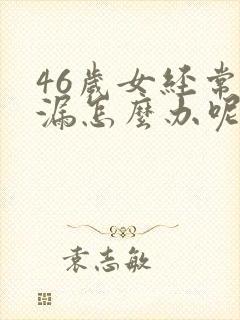 46歲女經常
漏怎麼办呢
袁志敏